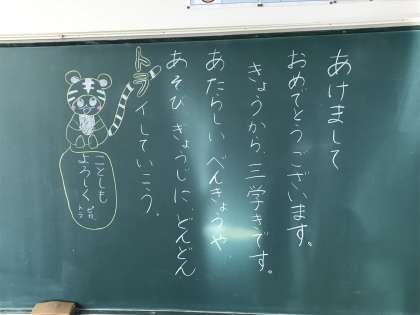 あけまして
おめでとうございます。
きょうから、三学きです。
あたらしい べんきょうや、
あそび、きょうじに、どんどん
トライしていこう。
ことしも
よろしく